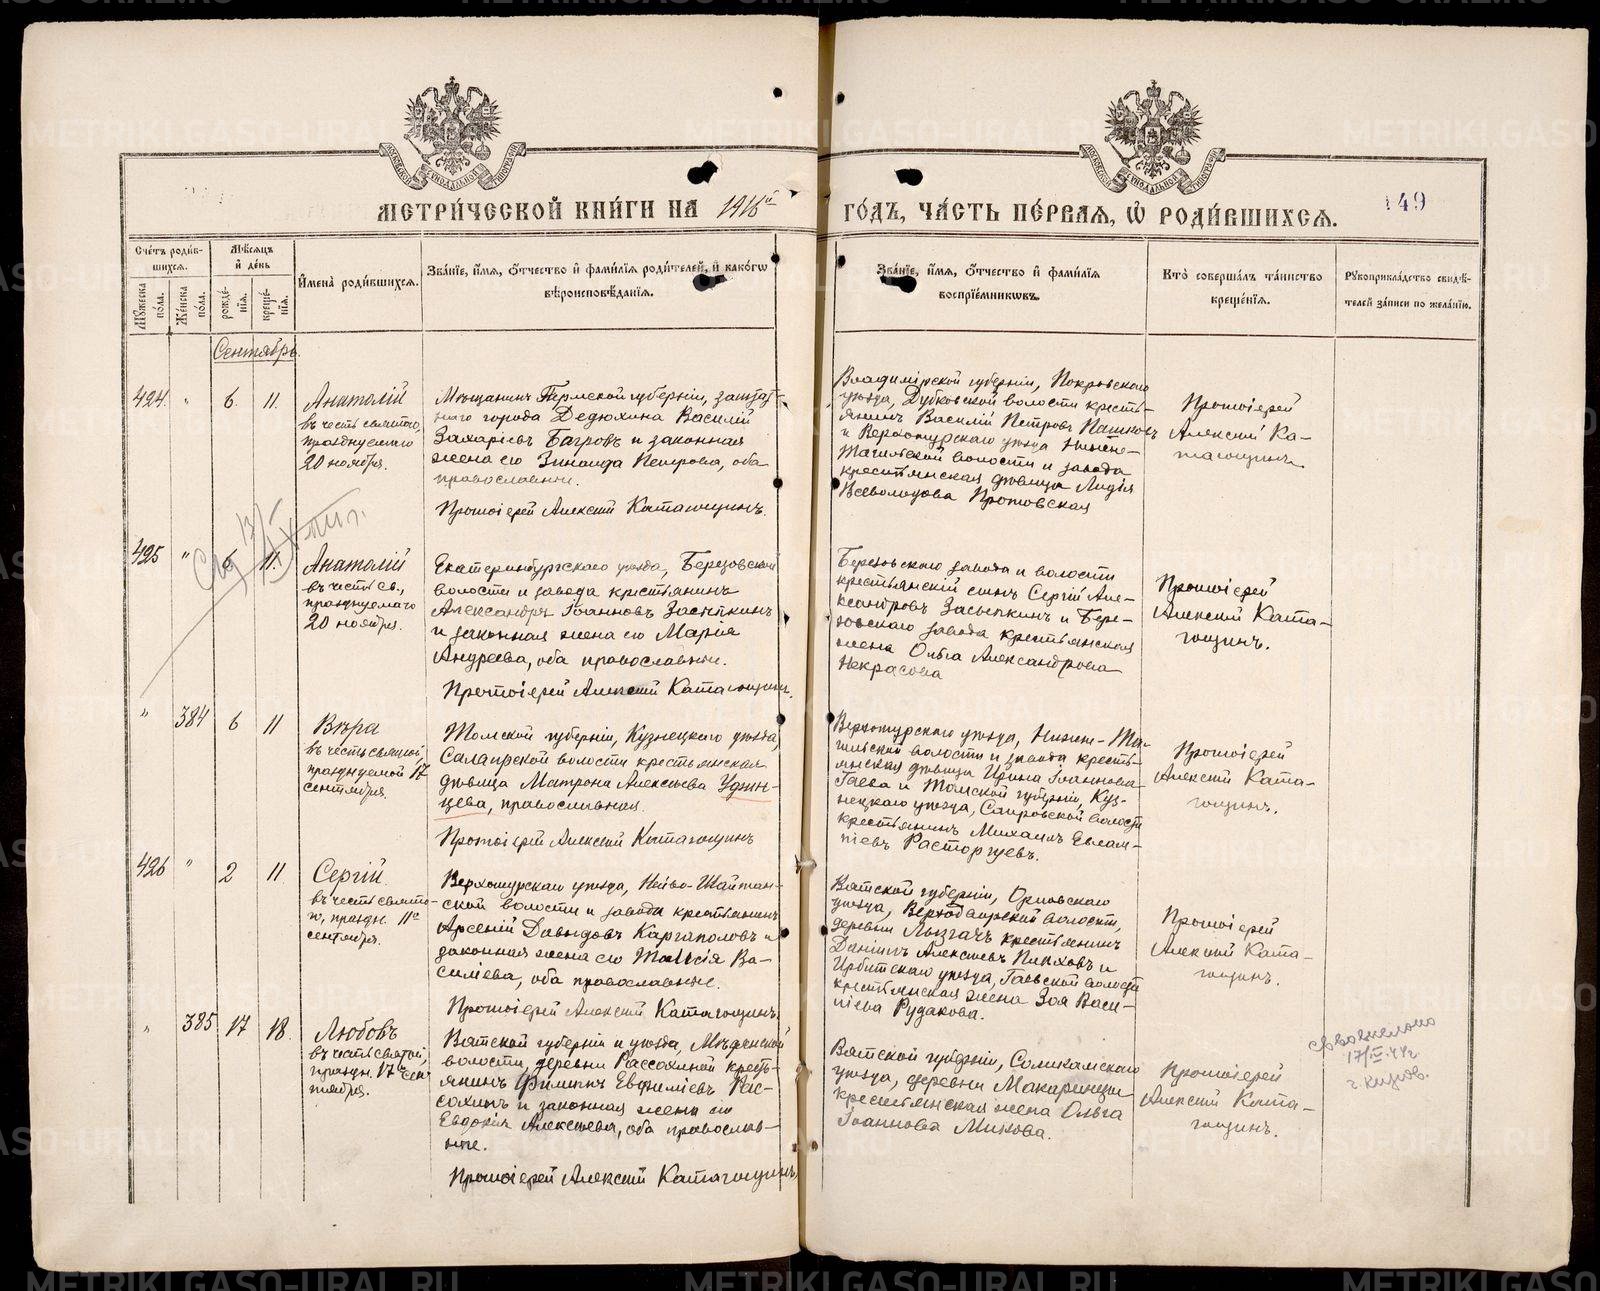 МЕТРИ́ЧЕСКОЙ КНИ́ГИ НА 1916й ГО́ДЪ, ЧА́СТЬ ПЕ́РВАЯ, Ѡ РОДИ́ВШИХСЯ.
149
Сче́тъ роди́вшихся.
Му́жеска по́ла.
Же́нска по́ла.
Мѣ́сяцъ и де́нь
рожде́нїя.
креще́нїя.
И́мена роди́вшихся.
Зва́нїе, и́мя, о́тчество и фами́лїя роди́телей, и како́гѡ
вѣроисповѣ́данїя.
Зва́нїе, и́мя, о́тчество и фами́лїя
воспрїе́мниковъ.
Кто́ соверша́лъ та́инство
креще́нїя.
Рукоприкла́дство свидѣ́-
телей за́писи по жела́нїю.
Сентябрь.
424. " 6. 11.
Анатолій
въ честь святого,
празднуемаго
20 ноября.
Мѣщанинъ Пермской губерніи, заштат-
наго города Дедюхина Василій
Захаріевъ Багровъ и законная
жена его Зинаида Петрова, оба
православные.
Протоіерей Алексій Катагощинъ.
Владимірской губерніи, Покровскаго
уѣзда, Дубковской волости кресть-
янинъ Василій Петровъ Пашковъ
и Верхотурскаго уѣзда Нижне-
Тагильской волости и завода
крестьянская дѣвица Лидія
Всеволодова Протовская
Протоіерей
Алексій Ка-
тагощинъ
425 " 6 11.
Анатолій
въ честь св.,
празднуемаго
20 ноября.
Екатеринбургскаго уѣзда, Березовской
волости и завода крестьянинъ
Александръ Іоанновъ Засыпкинъ
и законная жена его Марія
Андреева, оба православные.
Протоіерей Алексій Катагощинъ.
Березовскаго завода и волости
крестьянскій сынъ Сергій Але-
ксандровъ Засыпкинъ и Бере-
зовскаго завода крестьянская
жена Ольга Александрова
Некрасова
Протоіерей
Алексій Ката-
гощинъ.
" 384 6 11
Вѣра
въ честь святой,
празднуемой 17
сентября.
Томской губерніи, Кузнецкаго уѣзда,
Салаирской волости крестьянская
дѣвица Матрона Алексѣева Удин-
цева, православная.
Протоіерей Алексій Катагощинъ
Верхотурскаго уѣзда, Нижне-Та-
гильской волости и завода кресть-
янская дѣвица Ирина Іоаннова
Гаева и Томской губерніи, Куз-
нецкаго уѣзда, Саировской волости
крестьянинъ Михаилъ Евлам-
піевъ Расторгуевъ.
Протоіерей
Алексій Ката-
гощинъ.
426 " 2 11.
Сергій.
въ честь свято-
го, праздн. 11го
сентября.
Верхотурскаго уѣзда, Нейво-Шайтан-
ской волости и завода крестьянинъ
Арсеній Давидовъ Каргаполовъ и
законная жена его Таисія Ва-
сильева, оба православные.
Протоіерей Алексій Катагощинъ.
Вятской губерніи, Орловскаго
уѣзда, волости,
деревни крестьянинъ
Даніилъ Алексѣевъ и
Ирбитскаго уѣзда, Гаевской волости
крестьянская жена Зоя Васи-
ліева Рудакова.
Протоіерей
Алексій Ката-
гощинъ.
" 385 17 18
Любовь
въ честь святой,
праздн. 17 сен-
тября.
Вятской губерніи и уѣзда,
волости, деревни Рассохиной кресть-
янинъ Филиппъ Евфиміевъ Рас-
сохинъ и законная жена его
Евдокія Алексѣева, оба православ-
ные.
Протоіерей Алексій Катагощинъ.
Вятской губерніи, Соликамскаго
уѣзда, деревни
крестьянская жена Ольга
Іоаннова Микова.
Протоіерей
Алексій Ката-
гощинъ.
17/IV-44г
г. Киров.
METRIKI.GASO-URAL.RU